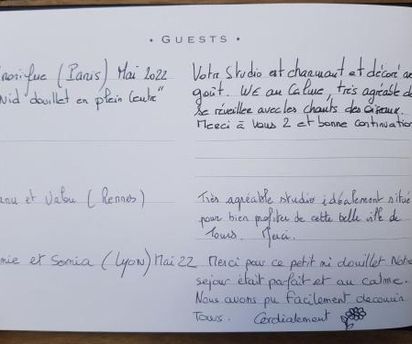 • GUESTS •
(Paris) Mai 2022
"Nid douillet en plein Centre"
Votre Studio est charmant et décoré avec
goût. WE au Calme, très agréable de
se réveiller avec les chants des oiseaux.
Merci à Vous 2 et bonne continuation
et Valou (Rennes)
Très agréable studio idéalement situé
pour bien profiter de cette belle ville de
Tours. Merci.
et Sonia (Lyon) Mai 22
Merci pour ce petit ni douillet Notre
sejour était parfait et au calme.
Nous avons pu facilement decouvrir
Tours. Cordialement